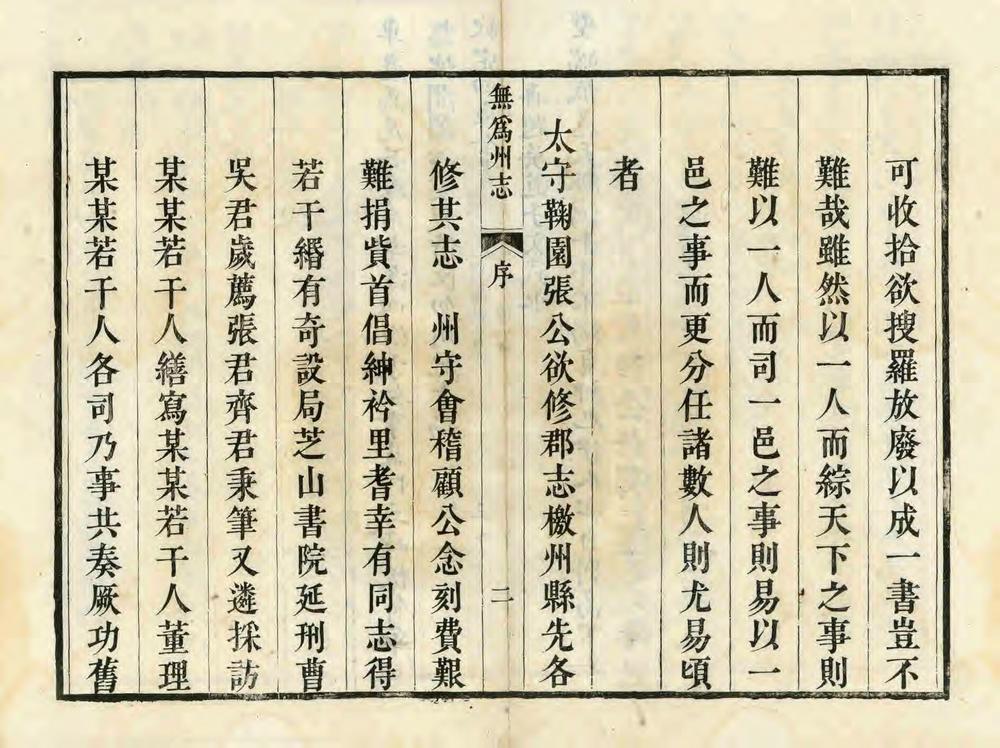 可收拾欲搜羅放廢以成一書豈不
難哉雖然以一人而綜天下之事則
難以一人而司一邑之事則易以一
邑之事而更分任諸數人則尤易頃
者
太守鞠園張公欲修郡志檄州縣先各
無爲州志 序 二
修其志 州守會稽顧公念刻費艱
難捐貲首倡紳衿里耆幸有同志得
若干緡有奇設局芝山書院延刑曹
吳君歲薦張君齊君秉筆又遴採訪
某某若干人繕寫某某若干人董理
某某若干人各司乃事共奏厥功舊